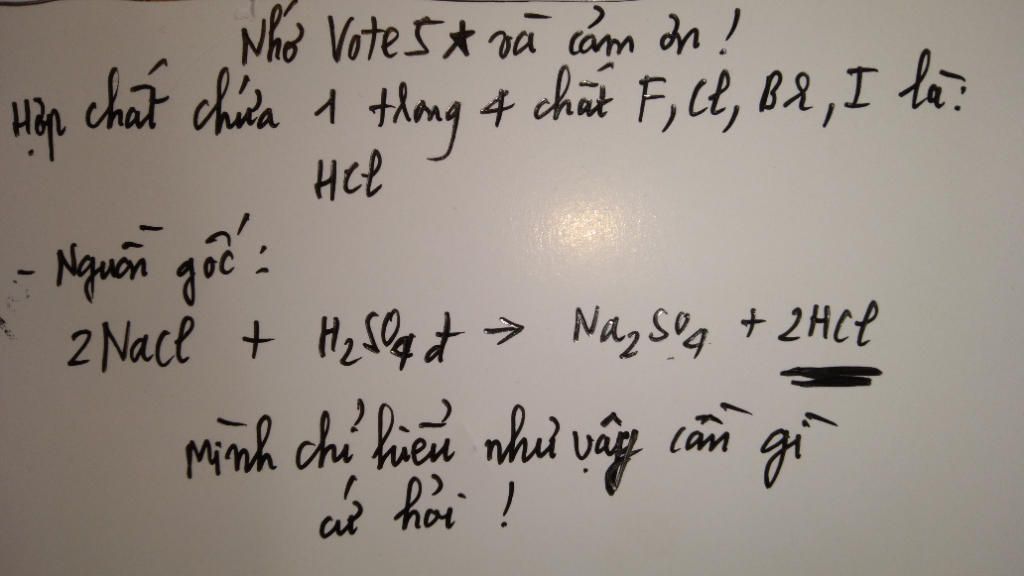 Nhớ Vote 5 ★ và cảm ơn !
Hợp chất chứa 1 trong 4 chất F, Cl, Br, I là:
HCl
- Nguồn gốc :
2NaCl + H₂SO₄ đ → Na₂SO₄ + 2HCl
Mình chỉ hiểu như vậy cần gì
cứ hỏi !